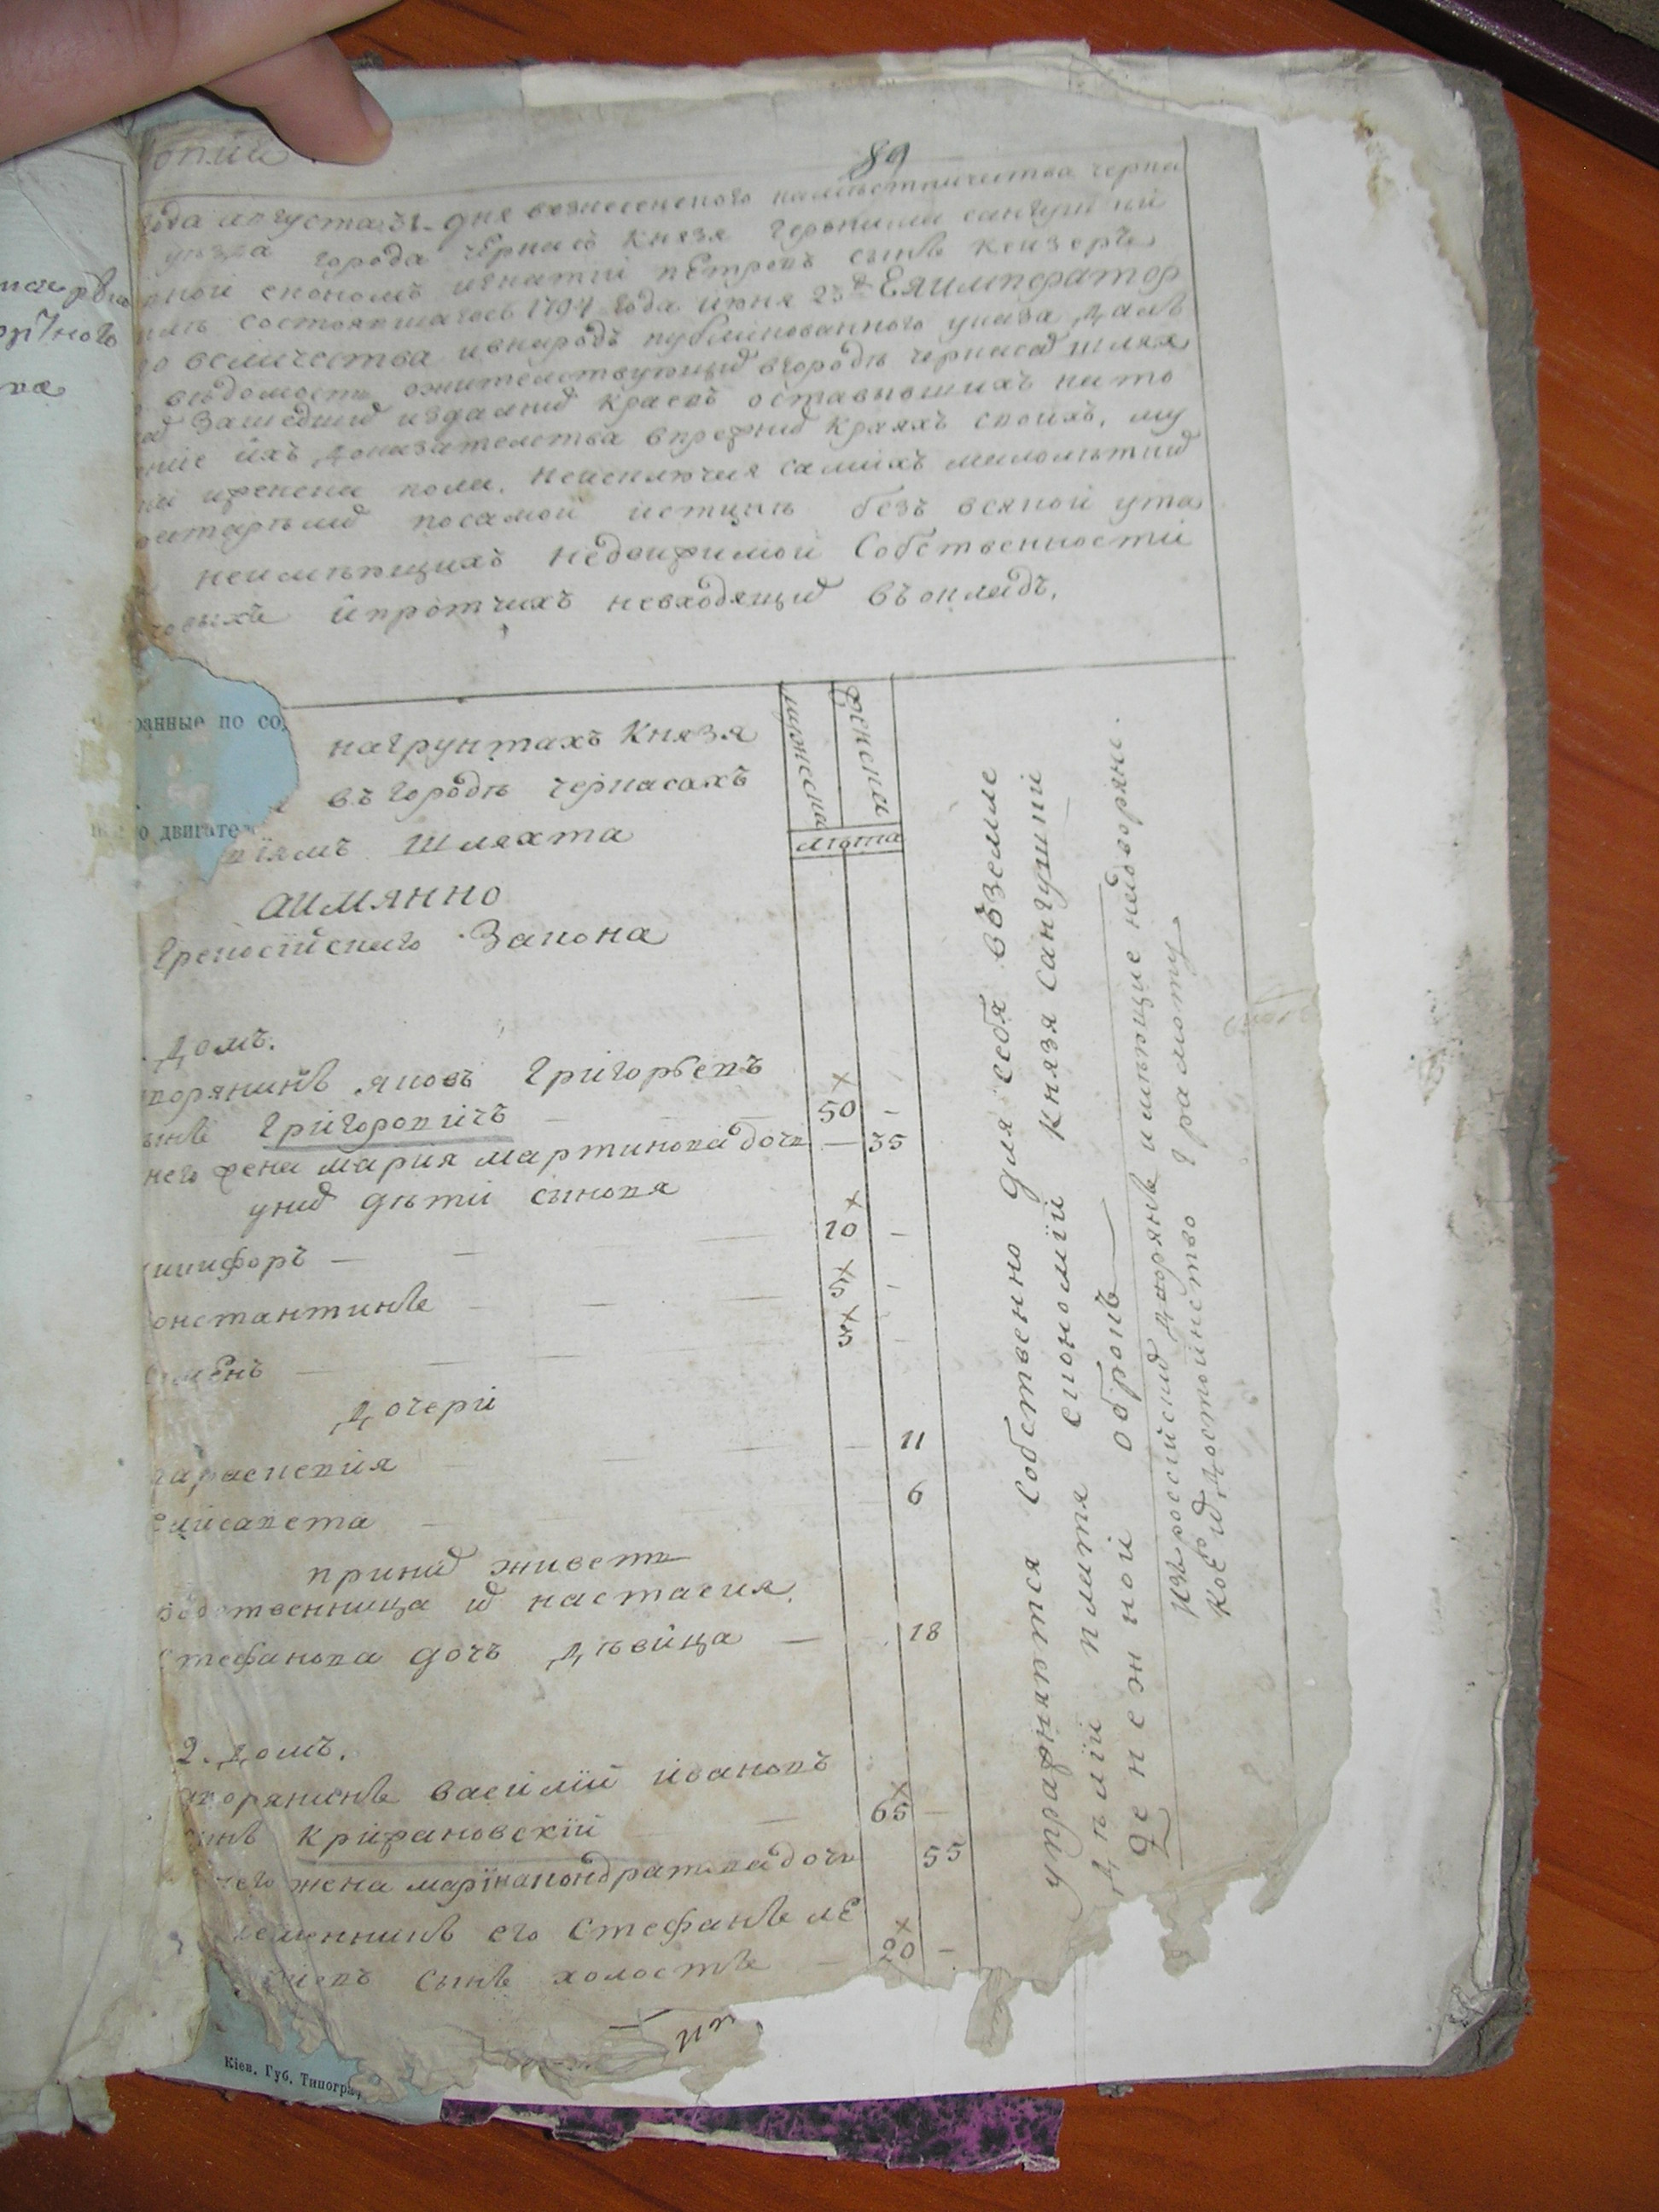 опии.
89
года августа 31. дня вознесенского наместничества черка
уезда города черкасъ князя геронима сангушки
ной економъ игнатіи петровъ сынъ кеизеръ
состоявшагось 1794 года июня 23д Ея император
го величества ивнародъ публикованного указа далъ
ведомость ожителствующихъ вгороде черкасахъ шлях
Зашедшихъ издалнихъ краевъ оставившихъ нато
ніе ихъ доказателства впрежнихъ краяхъ своихъ, му
ка иженска пола, неисключая самихъ малолетнихъ
старелихъ посамой истинне безъ всякой ута
неимеющихъ недвижимой Собственности
ипротчихъ невходящихъ въокладъ.
ранные по со
нагрунтахъ Князя
въгороде черкасахъ
о двигате
Шляхта
аимянно
Грекосійскаго Закона
мужеска
женска
лета
домъ.
дворянинъ яковъ Григорьевъ
сынъ Григоровичъ — 50 —
него жена мария мартинова дочь — 35
унихъ дети синовя
никифоръ — 10 —
константинъ — 5 —
семенъ — 3 —
дочери
параскевия — 11
елисавета — 6
принихъ живетъ
родственница ихъ настасия
стефанова дочь девица — 18
2. домъ.
дворянинъ василий івановъ
сынъ Крижановский — 65 —
него жена марина кондратова дочь 55
племенникъ его Стефанъ ле
сынъ холостъ — 20 —
упражняются Собственно для себя въземле
делии платя економии князя сангушки
денежной оброкъ
изъ российскихъ дворянъ имеющие надворяне
кое ихъ достоинство грамоту
Кіев. Губ. Типогра